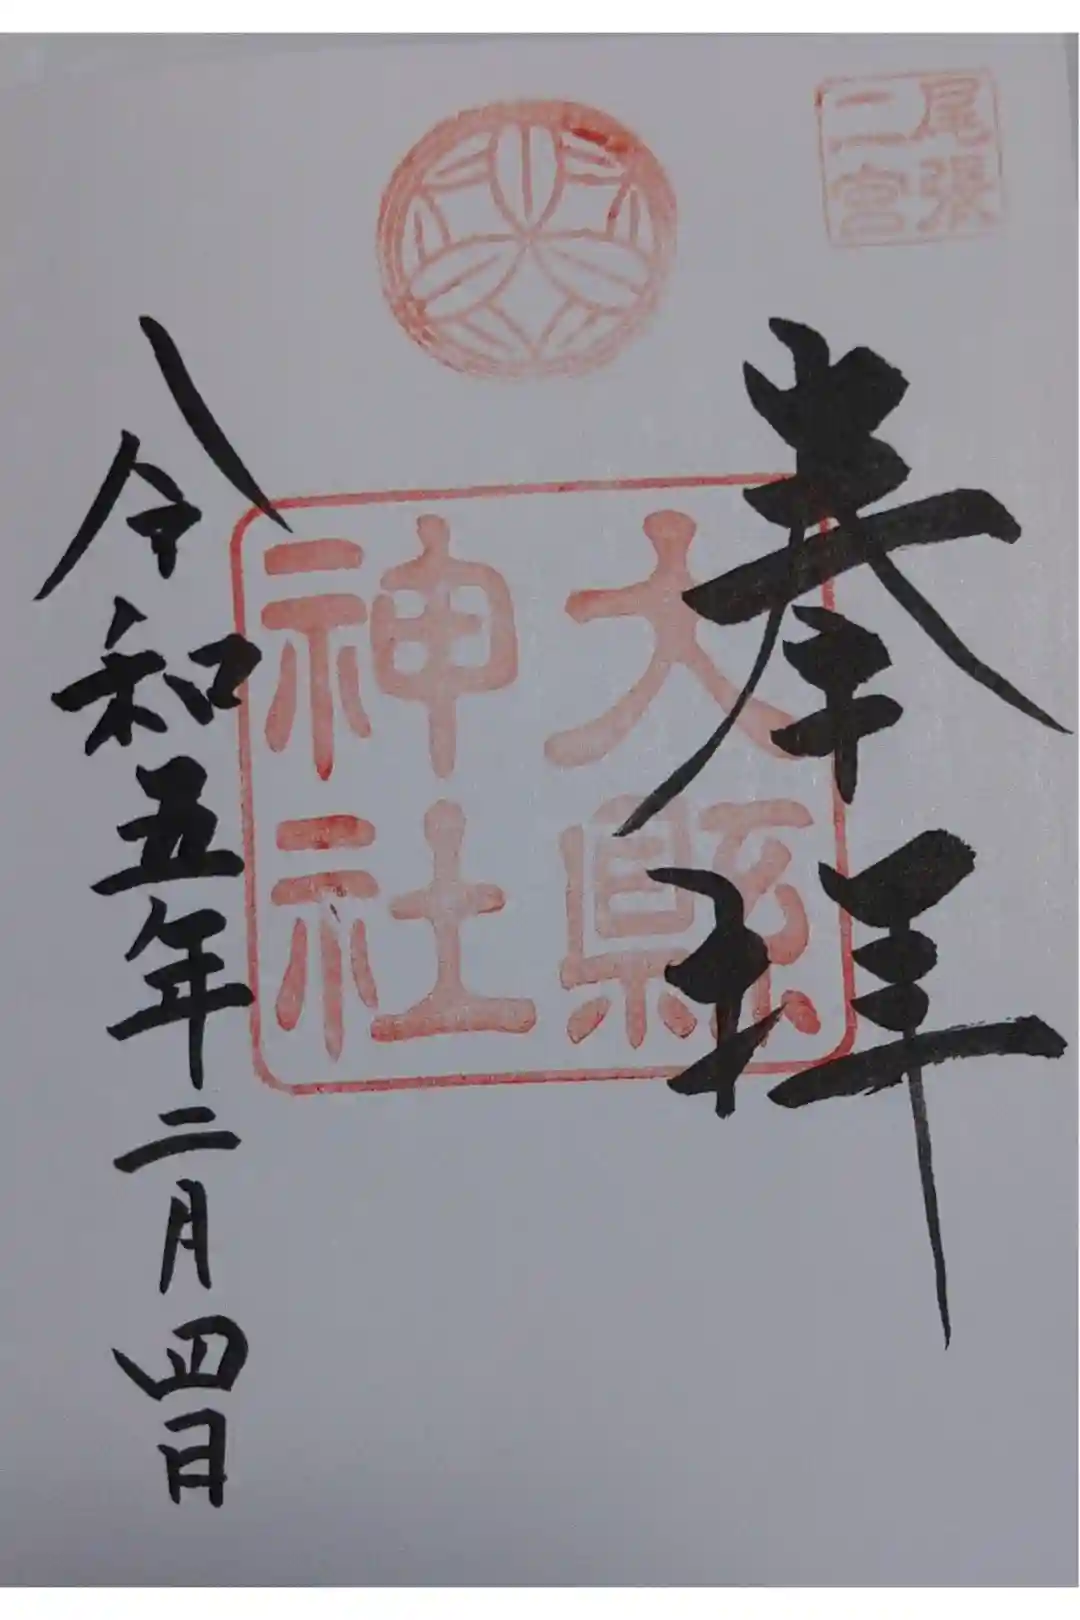 尾張
二宮
奉拝
大縣
神社
令和五年二月四日